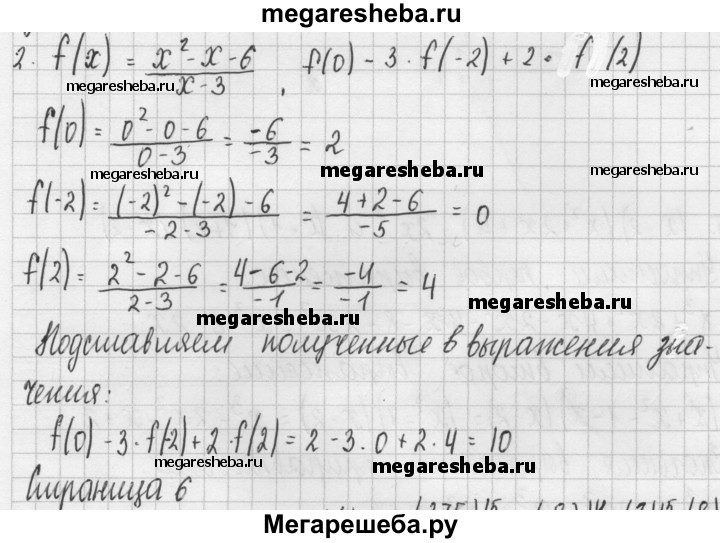 megaresheba.ru
2. f(x) = (x² - x - 6)/(x - 3), f(0) - 3 · f(-2) + 2 · f(2)
megaresheba.ru megaresheba.ru
f(0) = (0² - 0 - 6)/(0 - 3) = (-6)/(-3) = 2
megaresheba.ru megaresheba.ru megaresheba.ru
f(-2) = ((-2)² - (-2) - 6)/(-2 - 3) = (4 + 2 - 6)/(-5) = 0
f(2) = (2² - 2 - 6)/(2 - 3) = (4 - 6 - 2)/(-1) = (-4)/(-1) = 4
megaresheba.ru megaresheba.ru
Подставляем полученные в выражения зна-
чения:
f(0) - 3 · f(-2) + 2 · f(2) = 2 - 3 · 0 + 2 · 4 = 10
megaresheba.ru megaresheba.ru
Страница 6
Мегарешеба.ру